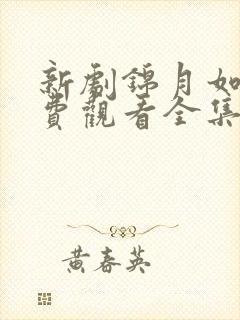 新劇錦月如
費觀看全集
黄春英